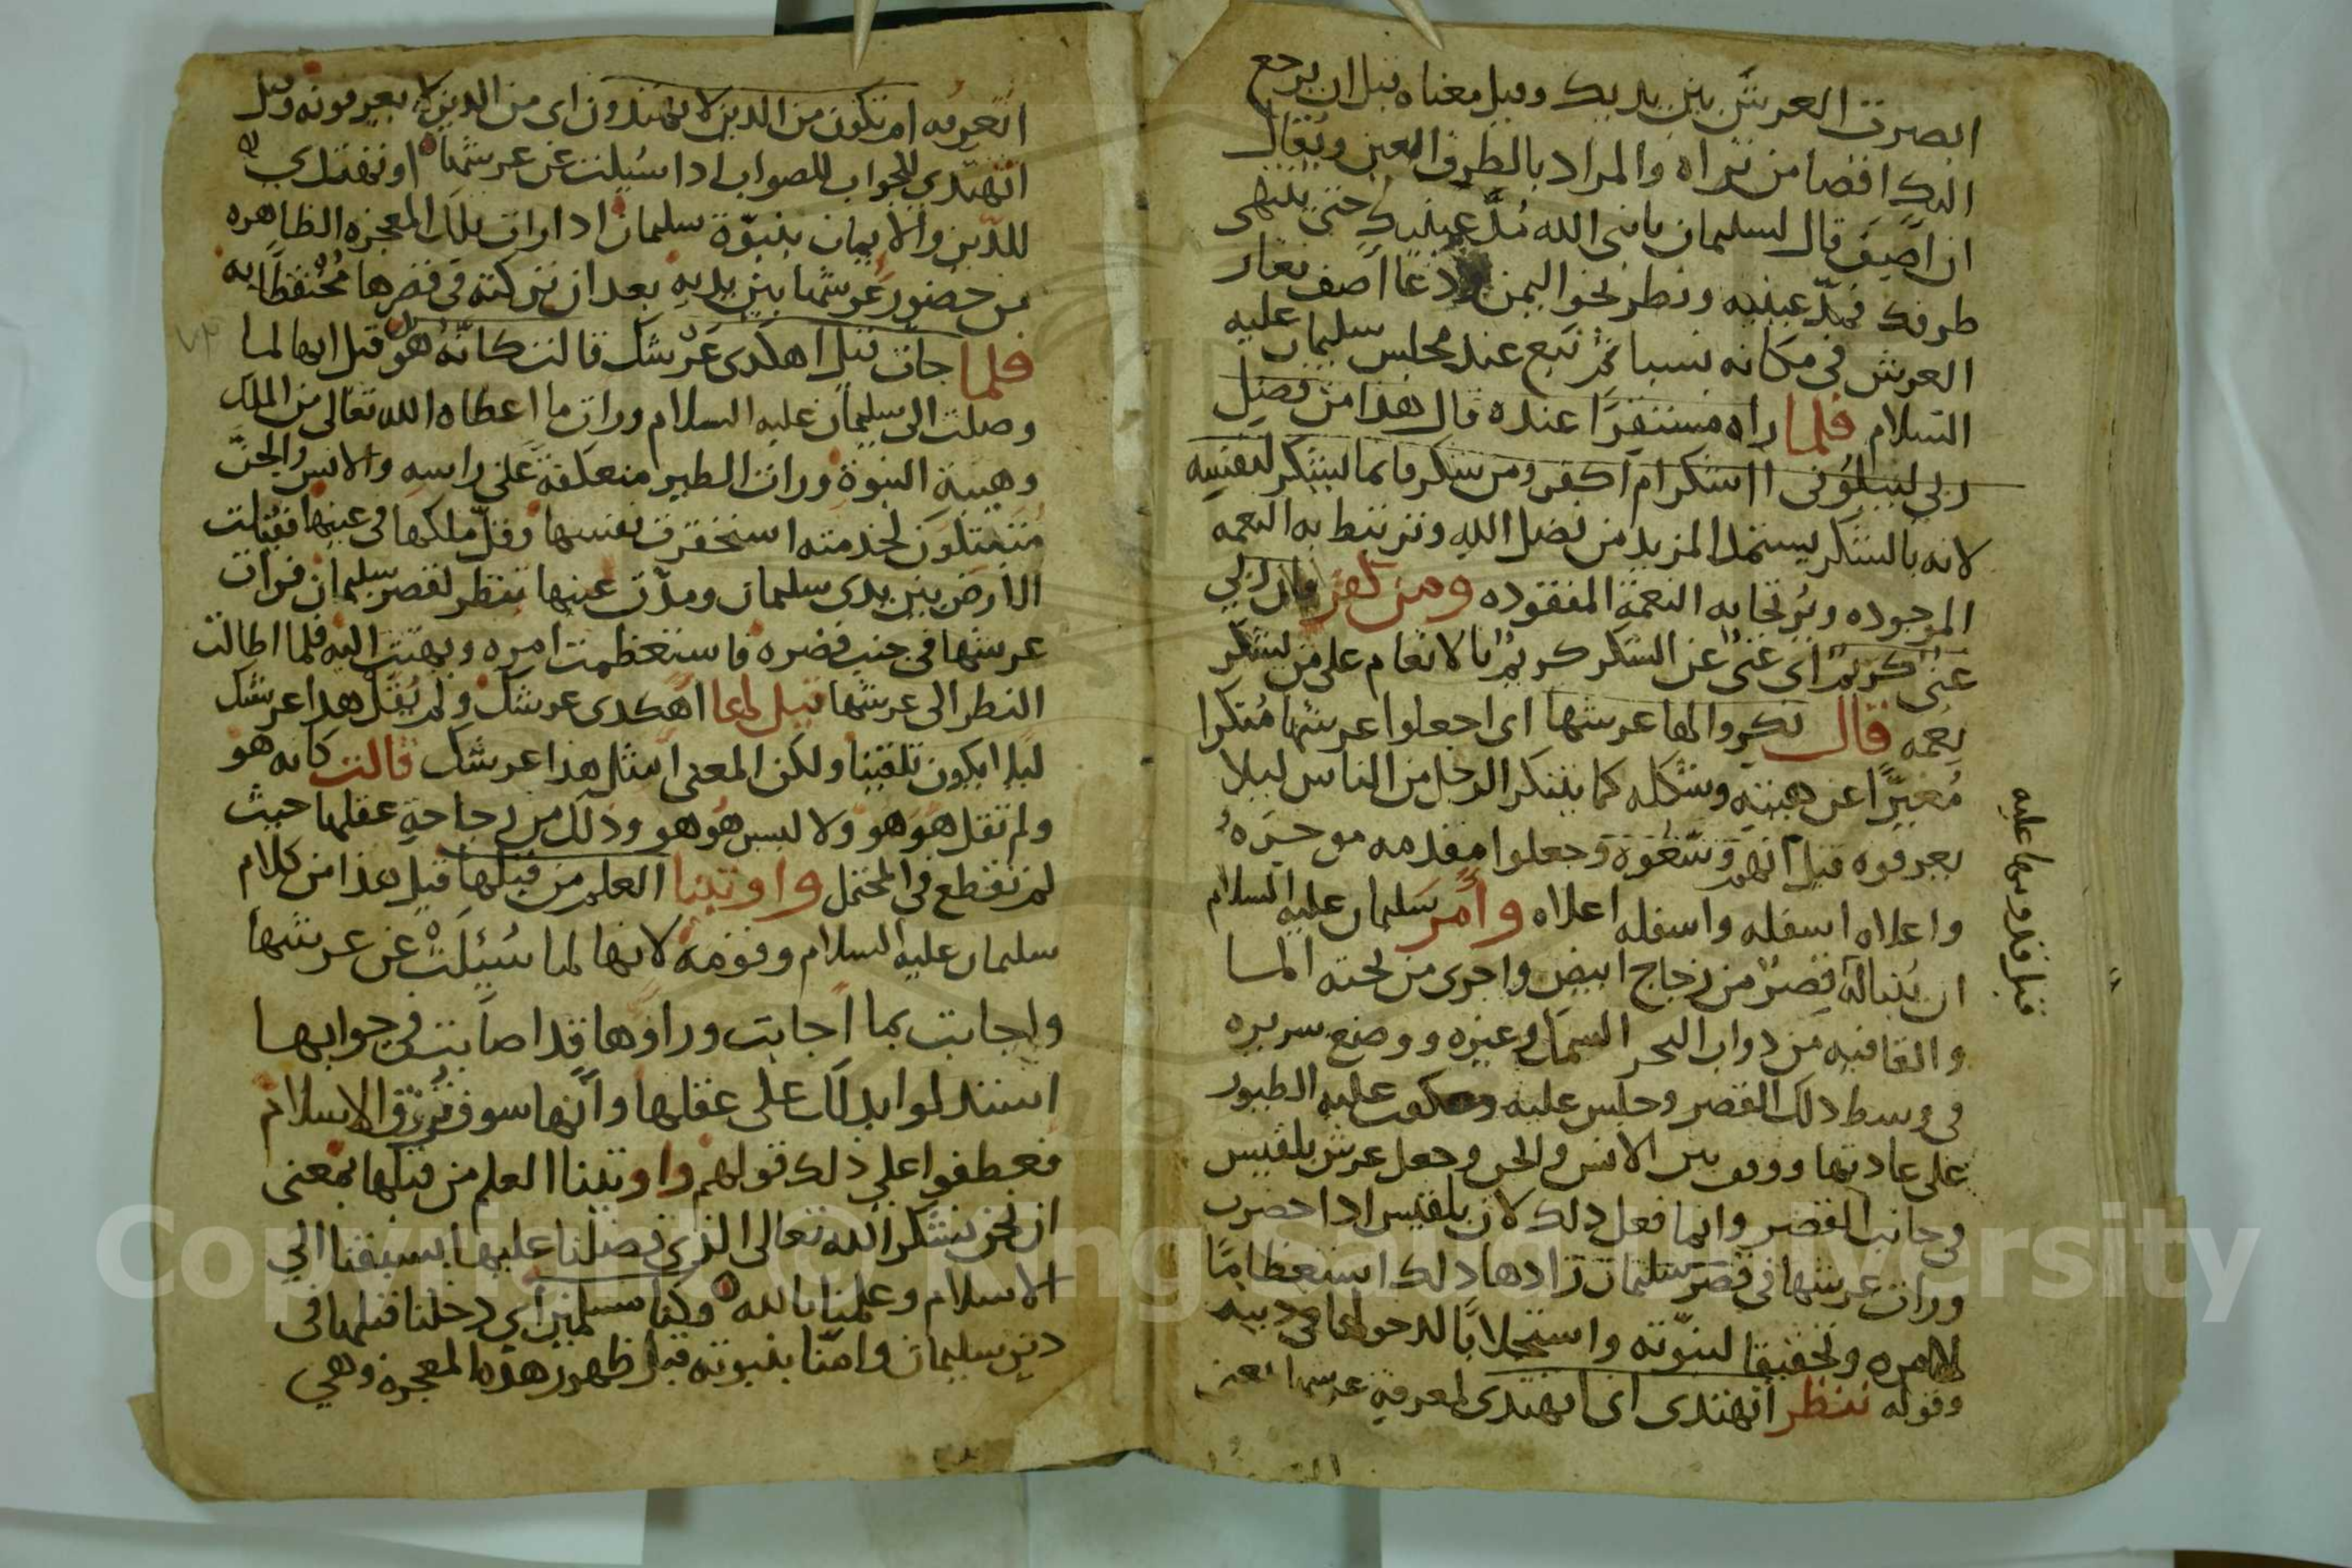 ابصرت العرش بين يديك وقيل معناه قبل ان يرجع
اليك اقصا من تراه والمراد بالطرف العين ويقال
ان اصف قال لسليمان يا نبي الله مُدَّ عينيك حتى ينتهى
طرفك فمدّ عينيه ونظر نحو اليمن ودعا اصف فغار
العرش فى مكانه بسبا ثم نبع عند مجلس سليمان عليه
السلام فلما راه مستقرًا عنده قال هذا من فضل
ربي ليبلوني ااشكر ام اكفر ومن شكر فانما يشكر لنفسه
لانه بالشكر يستمد المزيد من فضل الله وترتبط به النعمه
الموجوده وترتجا به النعمة المفقوده ومن كفر فان ربي
غنى كريم اي غنى عن الشكر كريم بالانعام على من يشكر
نعمه قال نكروا لها عرشها اى اجعلوا عرشها مُنكرا
مُغيرًا عن هيئته وشكله كما يتنكر الرجل من الناس ليلا
يعرفوه قيل انهم وسّعوه وجعلوا مقدمه موخره
واعلاه اسفله واسفله اعلاه وأمر سليمان عليه السلام
ان يُبنا له قصرٌ من زجاج ابيض واجرى من تحته الما
والقا فيه من دواب البحر السمك وغيره ووضع سريره
فى وسط ذلك القصر وجلس عليه وعكفت عليه الطيور
على عادتها ووقف بين الانس والجن وجعل عرش بلقيس
فى جانب القصر وانما فعل ذلك لان بلقيس اذا حضرت
ورات عرشها فى قصر سليمان زادها ذلك استعظامًا
لامره وتحقيقا لنبوّته واستجلابًا لدخولها فى دينه
وقوله ننظر أتهتدى اى اتهتدى لمعرفة عرشها يعنى
قيل قدومها عليه
اتعرفه ام تكون من الذين لا يهتدون اى من الذين لا يعرفونه وقيل
اتهتدي للجواب للصواب اذا سُيلت عن عرشها او تهتدي
للدين والايمان بنبوّة سليمان اذا رات تلك المعجزه الظاهره
من حضور عرشها بين يديه بعد ان تركته فى قصرها محتفظًا به
فلما جات قيل اهكذى عرشك قالت كانّه هو قيل انها لما
وصلت الى سليمان عليه السلام ورات ما اعطاه الله تعالى من الملك
وهيبة النبوة ورات الطير منعكفة على راسه والانس والجنّ
متمثلون لخدمته استحقرت نفسها وقلّ ملكها فى عينها فقبلت
الارض بين يدى سليمان ومدّت عينها تنظر لقصر سليمان فرات
عرشها فى جنب قصره فاستعظمت امره وبهتت اليه فلما اطالت
النظر الى عرشها قيل لها اهكذى عرشك ولم يُقل هذا عرشك
ليلا يكون تلقينا ولكن المعنى امثل هذا عرشك قالت كانه هو
ولم تقل هو هو ولا ليس هو هو وذلك من رجاحة عقلها حيث
لم تقطع فى المحتمل واوتينا العلم من قبلها قيل هذا من كلام
سليمان عليه السلام وقومه لانها لما سُيلَتْ عن عرشها
واجابت بما اجابت وراوها قد اصابت فى جوابها
استدلوا بذلك على عقلها وانها سوف ترزق الاسلام
فعطفوا على ذلك قولهم واوتينا العلم من قبلها بمعنى
ان نحن نشكر الله تعالى الذى فضلنا عليها بسبقنا الى
الاسلام وعلمنا بالله وكنا مسلمين اي دخلنا قبلها فى
دين سليمان وامنّا بنبوته قبل ظهور هذه المعجزه وهي
Copyright © King Saud University